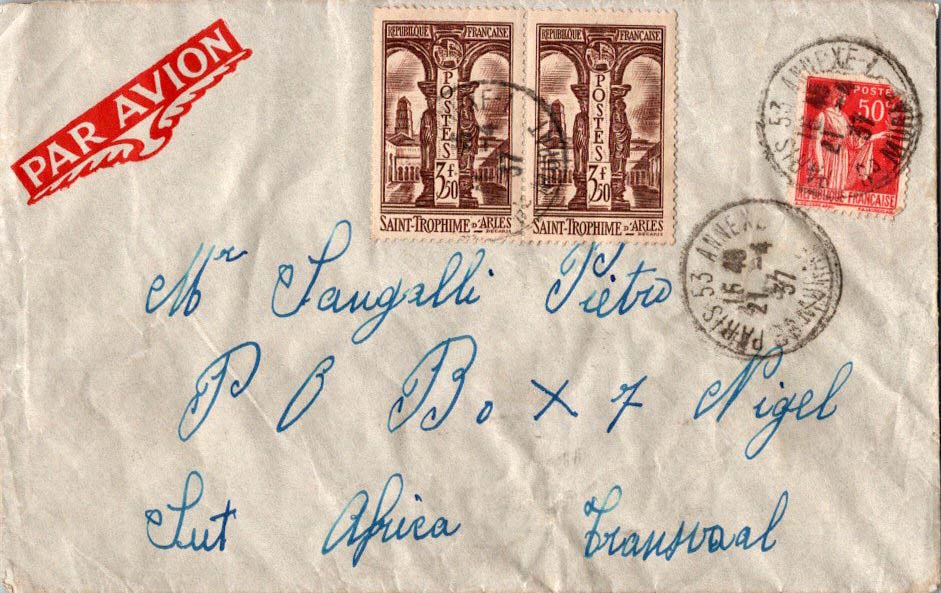 PAR AVION
REPUBLIQUE FRANÇAISE
POSTES
3f.
50
SAINT-TROPHIME D'ARLES
REPUBLIQUE FRANÇAISE
POSTES
3f.
50
SAINT-TROPHIME D'ARLES
POSTES
50c
REPUBLIQUE FRANÇAISE
PARIS 53 ANNEXE
21
37
PARIS 53 ANNEXE
15 45
21-4
37
Mr Sangalli Pietro
P O Bo x 7 Nigel
Sut Africa Transvaal